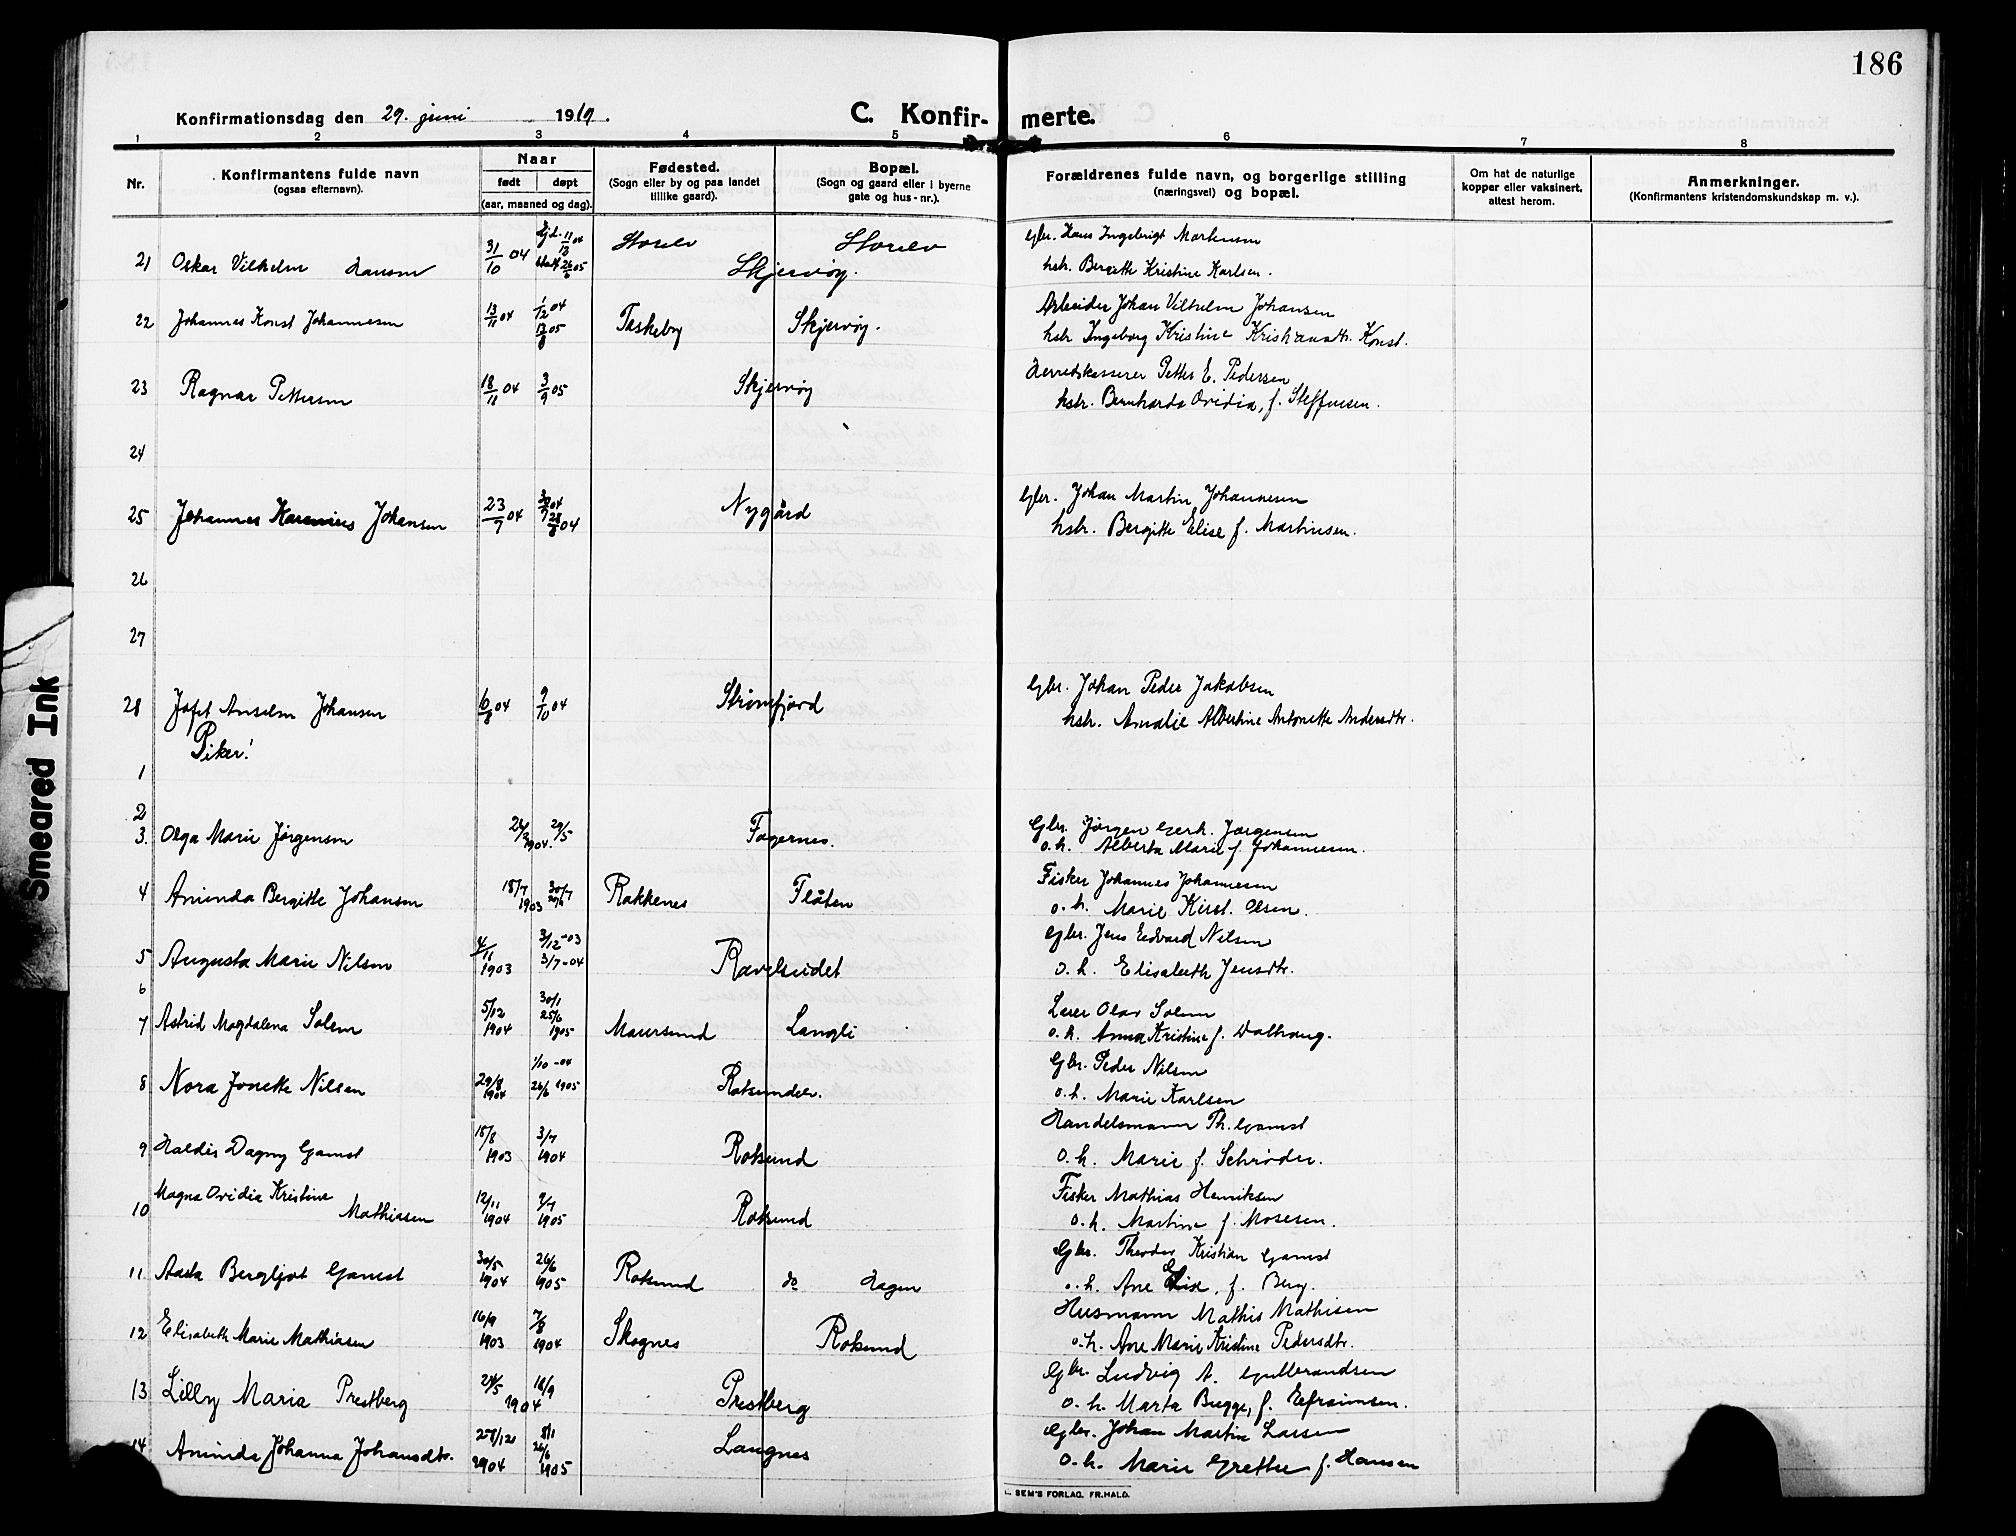 186
Konfirmationsdag den 29. juni 1919.
C. Konfir- merte.
1 2 3 4 5 6 7 8
Nr.
Konfirmantens fulde navn
(ogsaa efternavn).
Naar
født døpt
(aar, maaned og dag).
Fødested.
(Sogn eller by og paa landet
tillike gaard).
Bopæl.
(Sogn og gaard eller i byerne
gate og hus-nr.).
Forældrenes fulde navn, og borgerlige stilling
(næringsvei) og bopæl.
Om hat de naturlige
kopper eller vaksinert,
attest herom.
Anmerkninger.
(Konfirmantens kristendomskundskap m. v.).
21 Oskar Vilhelm Hansen 31/10 04 Storelv Storelv
Skjervøy.
Gbr. Hans Ingebrigt Martensen
hstr. Bergitte Kristine Karlsen.
22 Johannes Konst Johannesen 13/11 04 1/12 04 Taskeby Skjervøy.
Arbeider Johan Vilhelm Johansen
hstr. Ingeborg Kristine Kristiansdtr. Konst.
23 Ragnar Pettersen 18/11 04 3/9 05 Skjervøy
Herredskasserer Petter E. Pedersen
hstr. Bernharda Ovidia, f. Steffensen.
24
25 Johannes Karenius Johansen 23/9 04 Nygård
Gbr. Johan Martin Johannesen
hstr. Bergitte Elise f. Martinsen.
26
27
28 Jafet Anselm Johansen 6/8 04 9/10 04 Strømfjord
Gbr. Johan Peder Jakobsen
hstr. Amalie Albertine Antonette Andersdtr.
Piker!
1
2
3. Olga Marie Jørgensen 1904. 29/5 Fagernes.
Gbr. Jørgen Gerh. Jørgensen
o. h. Alberta Marie f. Johannesen.
4 Aminda Bergitte Johansen 18/7 1903 30/7 Rakkenes Flåten
Fisker Johannes Johannesen
o. h. Marie Kirst. Olsen.
5 Augusta Marie Nilsen 4/11 1903 3/12-03 3/7-04 Ravelseidet
Gbr. Jens Edvard Nilsen
o. h. Elisabeth Jensdtr.
6
7 Astrid Magdalena Solem 5/12 1904 30/1 25/6 1905 Maursund Langli
Lærer Olav Solem
o. h. Anna Kristine f. Dalhaug.
8 Nora Jonette Nilsen 29/8 1904 1/10-04 26/6 1905 Rotsundelv.
Gbr. Peder Nilsen
o. h. Marie Karlsen
9 Haldis Dagny Gamst 18/8 1903 3/7 1904 Rotsund
Handelsmann Th. Gamst
o. h. Marie f. Schrøder.
10 Magna Ovidia Kristine
Mathiasen 12/11 1904 9/7 1905 Rotsund
Fisker Mathias Henriksen
o. h. Martine f. Mosesen.
11 Aasta Bergljot Gamst 30/5 1904 26/6 1905 Rotsund do Hagen
Gbr. Theodor Kristian Gamst
o. h. Ane Elise, f. Berg.
12 Elisabeth Marie Mathiasen 16/9 1903 7/8 1904 Skognes Rotsund
Husmann Mathis Mathisen
o. h. Ane Marie Kristine Pedersdtr.
13 Lilly Maria Prestberg 1904 18/9 Prestberg
Gbr. Ludvig A. Gulbrandsen
o. h. Marta Bugge, f. Efraimsen.
14 Aminda Johanna Johansdtr. 28/12 1904 8/1 26/6 1905 Langnes
Gbr. Johan Martin Larsen
o. h. Marie Grethe f. Hansen
SEM'S FORLAG. FR.HALD.
Smeared Ink